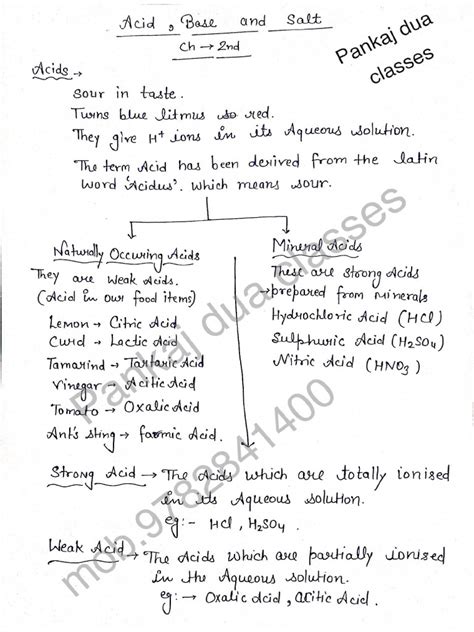 Acid, Base and Salt
Ch → 2nd
Pankaj dua
classes
Acids →
Sour in taste.
Turns blue litmus so red.
They give H+ ions in its Aqueous solution.
The term Acid has been derived from the latin
word 'Acidus'. which means sour.
Naturally Occuring Acids
They are weak Acids.
(Acid in our food items)
Lemon → Citric Acid
Curd → Lactic Acid
Tamarind → Tartaric Acid
Vinegar → Acitic Acid
Tomato → Oxalic Acid
Ant's sting → formic Acid.
Mineral Acids
These are strong Acids
prepared from minerals
Hydrochloric Acid (HCl)
Sulphuric Acid (H2SO4)
Nitric Acid (HNO3)
Pankaj dua classes
mob.9782841400
Strong Acid → The Acids which are totally ionised
in its Aqueous solution.
eg:- HCl, H2SO4.
Weak Acid → The Acids which are partially ionised
in the Aqueous solution.
eg:→ Oxalic Acid, acitic Acid.